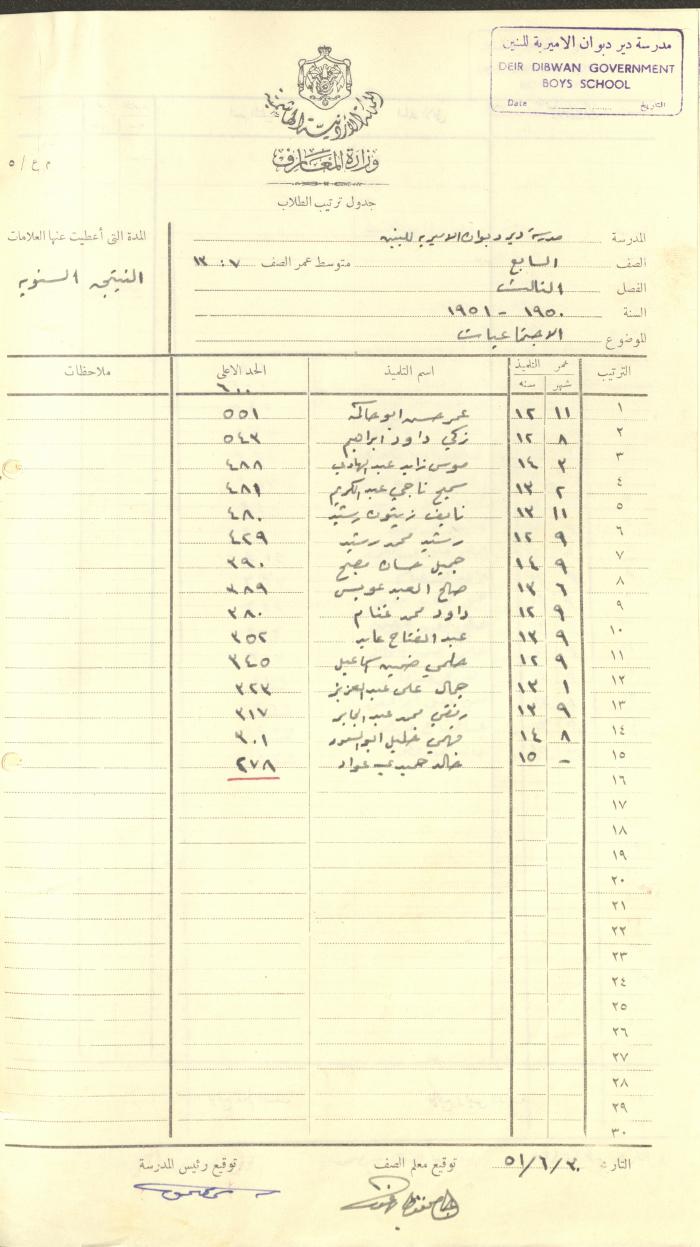 مدرسة دير دبوان الاميرية للبنين
DEIR DIBWAN GOVERNMENT
BOYS SCHOOL
Date التاريخ
المملكة الأردنية الهاشمية
وزارة المعارف
م ع / ٥
جدول ترتيب الطلاب
المدرسة مدرسة دير ديوان الاميريه للبنين
المدة التى أعطيت عنها العلامات
الصف السابع متوسط عمر الصف ٠٧ : ١٣
النتيجه السنويه
الفصل الثالث
السنة ١٩٥٠ - ١٩٥١
الموضوع الاجتماعيات
الترتيب عمر التلميذ اسم التلميذ الحد الاعلى ملاحظات
شهر سنه ٦٠٠
١ ١١ ١٢ عمر حسن ابو حاكمة ٥٥١
٢ ٨ ١٢ زكي داود ابراهيم ٥٤٣
٣ ٣ ١٤ موسى زايد عبد الهادي ٤٨٨
٤ ٢ ١٣ سميح ناجي عبد الكريم ٤٨١
٥ ١١ ١٣ نايف زيتون رشيد ٤٨٠
٦ ٩ ١٢ رشيد محمد رشيد ٤٢٩
٧ ٩ ١٤ جميل حسان مصبح ٣٩٠
٨ ٦ ١٣ صالح العبد عويس ٣٨٩
٩ ٩ ١٢ داود محمد غنام ٣٨٠
١٠ ٩ ١٣ عبد الفتاح عابد ٣٥٢
١١ ٩ ١٢ حلمي اسماعيل ٣٤٥
١٢ ١ ١٣ جمال علي عبد العزيز ٣٢٣
١٣ ٩ ١٣ محمد عبد الجابر ٣١٧
١٤ ٨ ١٤ فهمي خليل ابو السعود ٣٠١
١٥ - ١٥ خالد عواد ٢٧٨
١٦
١٧
١٨
١٩
٢٠
٢١
٢٢
٢٣
٢٤
٢٥
٢٦
٢٧
٢٨
٢٩
٣٠
التاريخ ٥١/٦/٣٠ توقيع معلم الصف توقيع رئيس المدرسة